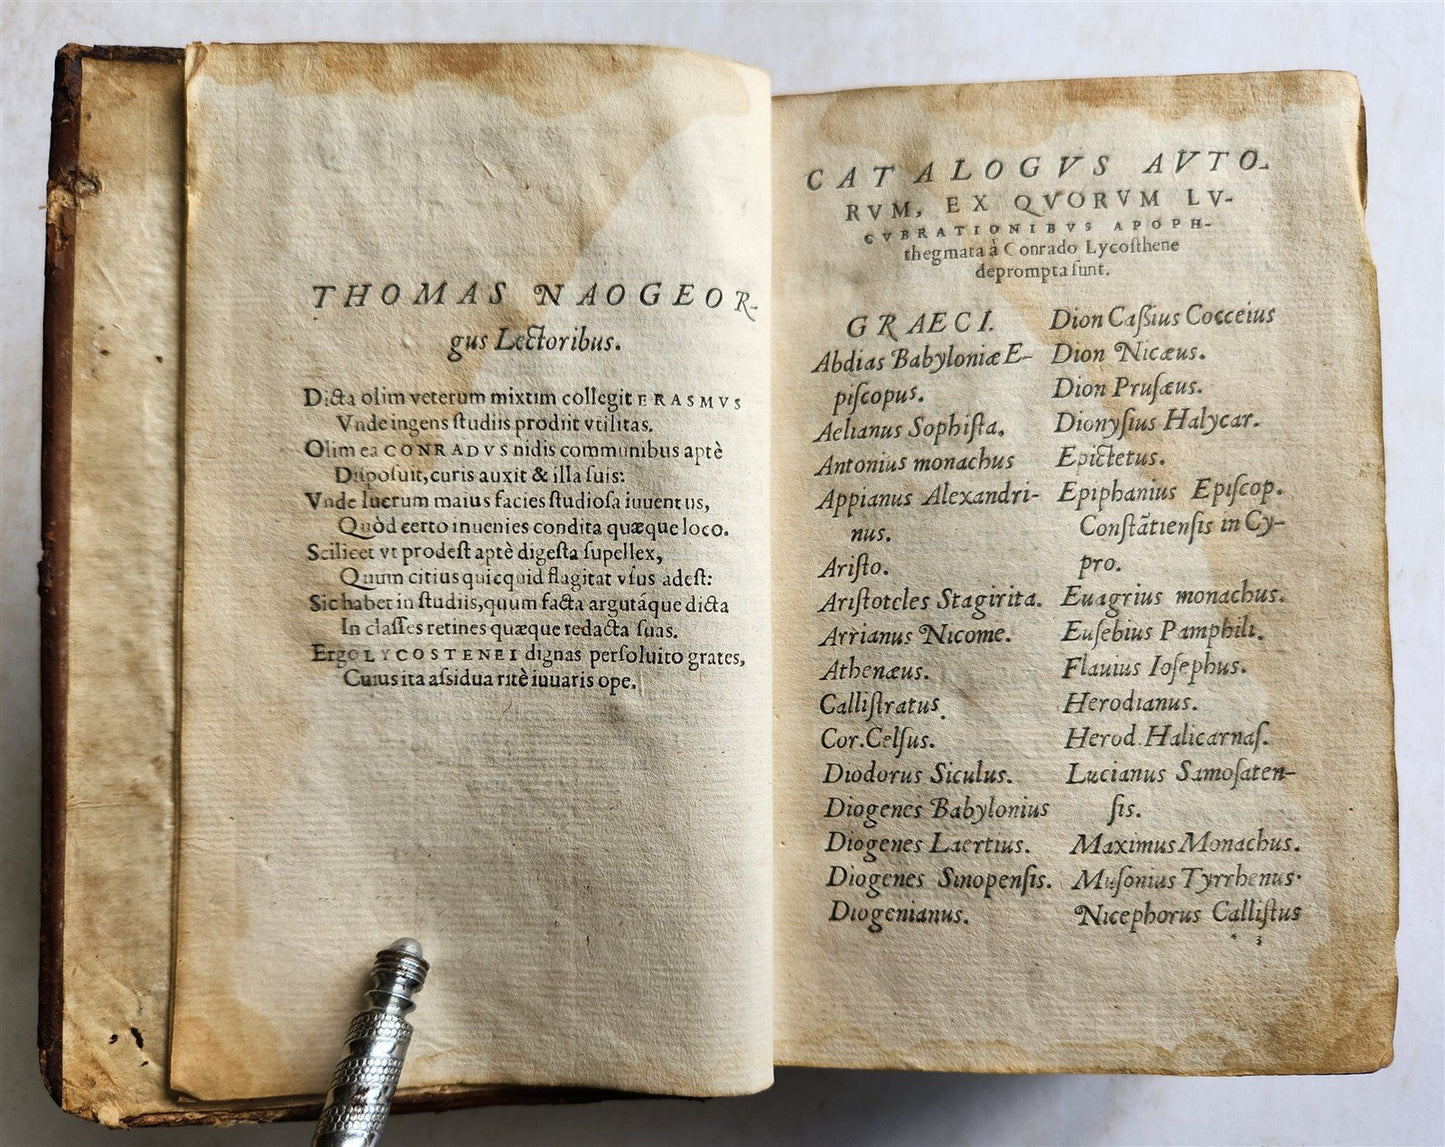 THOMAS NAOGEOR-
gus Lectoribus.
Dicta olim veterum mixtim collegit ERASMVS
Vnde ingens ſtudiis prodiit vtilitas.
Olim ea CONRADVS nidis communibus aptè
Diſpoſuit, curis auxit & illa ſuis:
Vnde lucrum maius facies ſtudioſa iuuentus,
Quòd certo inuenies condita quæque loco.
Scilicet vt prodeſt aptè digeſta ſupellex,
Quum citius quicquid flagitat vſus adeſt:
Sic habet in ſtudiis, quum facta argutáque dicta
In claſſes retines quæque redacta ſuas.
Ergo LYCOSTENEI dignas perſoluito grates,
Cuius ita aſsidua ritè iuuaris ope.
CATALOGVS AVTO-
RVM, EX QVORVM LV-
CVBRATIONIBVS APOPH-
thegmata à Conrado Lycoſthene
deprompta ſunt.
GRAECI.
Abdias Babyloniæ E-
piſcopus.
Aelianus Sophiſta.
Antonius monachus
Appianus Alexandri-
nus.
Ariſto.
Ariſtoteles Stagirita.
Arrianus Nicome.
Athenæus.
Calliſtratus.
Cor. Celſus.
Diodorus Siculus.
Diogenes Babylonius
Diogenes Laertius.
Diogenes Sinopenſis.
Diogenianus.
Dion Caſsius Cocceius
Dion Nicæus.
Dion Pruſæus.
Dionyſius Halycar.
Epictetus.
Epiphanius Epiſcop.
Conſtātienſis in Cy-
pro.
Euagrius monachus.
Euſebius Pamphili.
Flauius Ioſephus.
Herodianus.
Herod. Halicarnaſ.
Lucianus Samoſaten-
ſis.
Maximus Monachus.
Muſonius Tyrrhenus.
Nicephorus Calliſtus
* 3